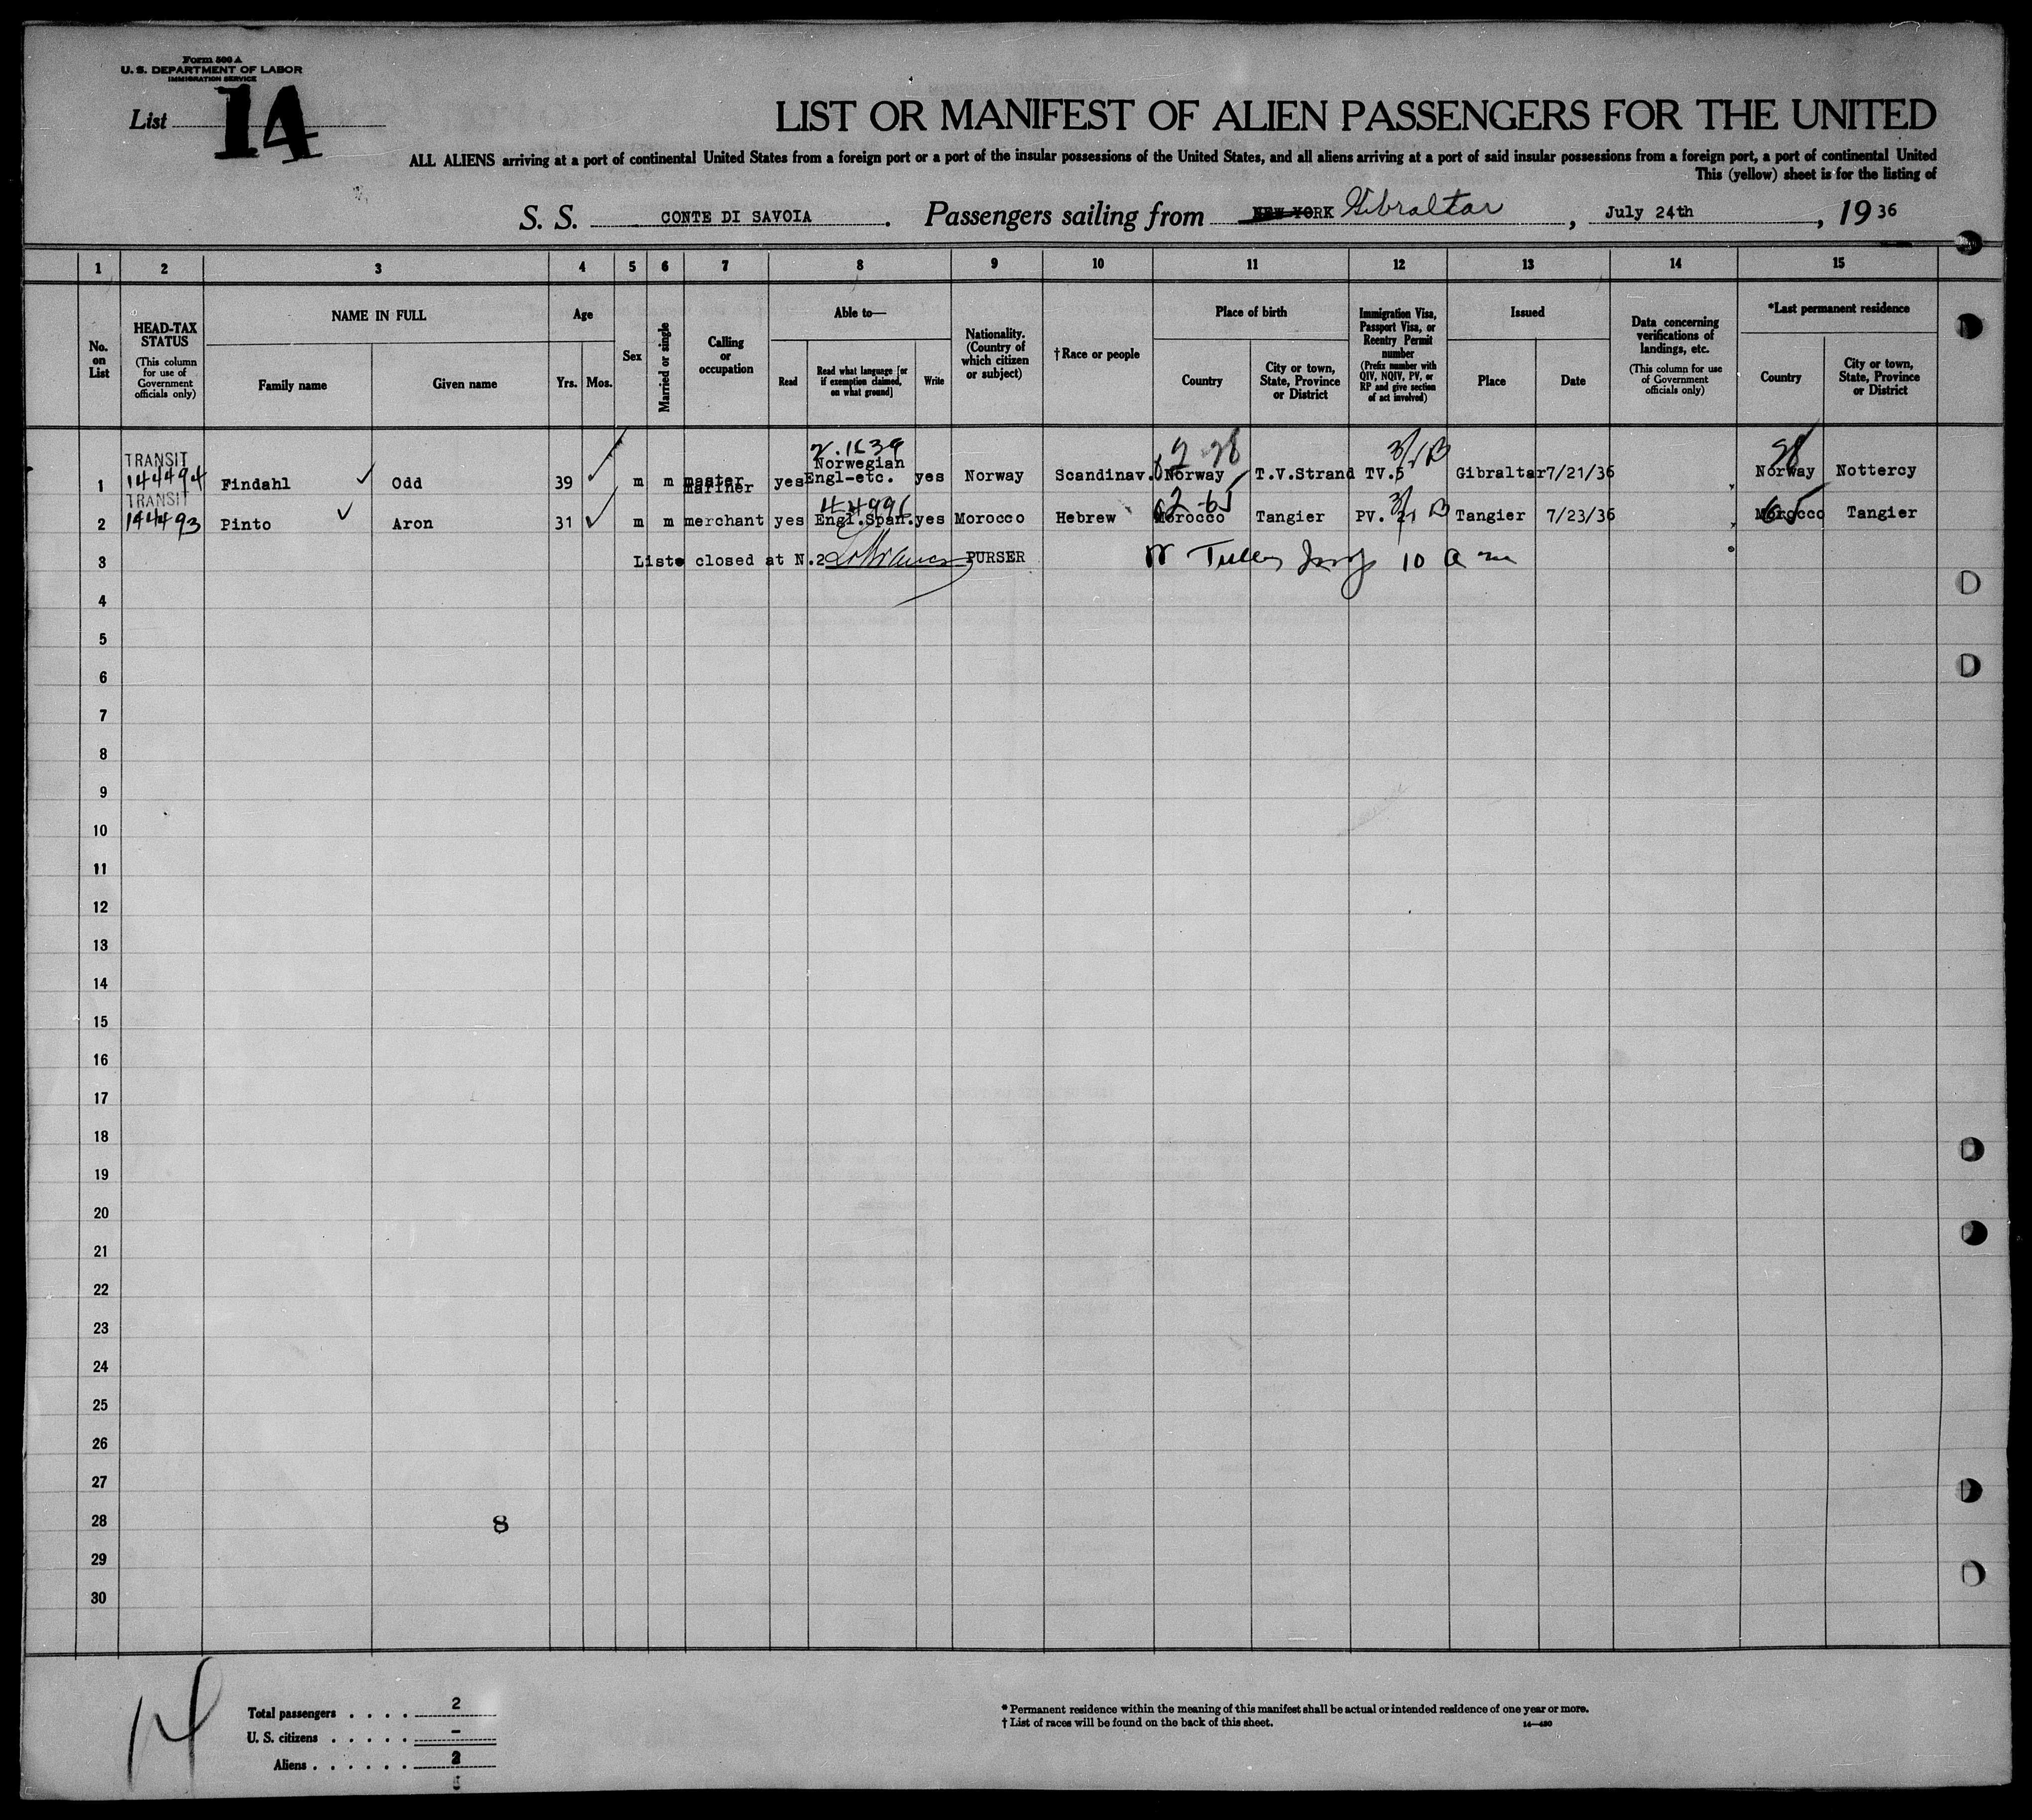 Form 500 A
U. S. DEPARTMENT OF LABOR
IMMIGRATION SERVICE
List 14
LIST OR MANIFEST OF ALIEN PASSENGERS FOR THE UNITED
ALL ALIENS arriving at a port of continental United States from a foreign port or a port of the insular possessions of the United States, and all aliens arriving at a port of said insular possessions from a foreign port, a port of continental United
This (yellow) sheet is for the listing of
S. S. CONTE DI SAVOIA. Passengers sailing from NEW YORK Gibraltar, July 24th, 19 36
1 2 3 4 5 6 7 8 9 10 11 12 13 14 15
No. on List
HEAD-TAX STATUS (This column for use of Government officials only)
NAME IN FULL
Family name Given name
Age
Yrs. Mos.
Sex
Married or single
Calling or occupation
Able to—
Read
Read what language [or if exemption claimed, on what ground]
Write
Nationality. (Country of which citizen or subject)
†Race or people
Place of birth
Country
City or town, State, Province or District
Immigration Visa, Passport Visa, or Reentry Permit number (Prefix number with QIV, NQIV, PV, or RP and give section of act involved)
Issued
Place Date
Data concerning verifications of landings, etc. (This column for use of Government officials only)
*Last permanent residence
Country
City or town, State, Province or District
TRANSIT 3/1B
1 144494 Findahl Odd 39 m m master mariner yes Norwegian Engl-etc. yes Norway Scandinav. Norway T.V.Strand TV.5 Gibraltar 7/21/36 Norway Nottercy
TRANSIT
2 144493 Pinto Aron 31 m m merchant yes Engl.Span. yes Morocco Hebrew Morocco Tangier PV. 21 Tangier 7/23/36 Morocco Tangier
3 Liste closed at N.2 PURSER 10 a m
4
5
6
7
8
9
10
11
12
13
14
15
16
17
18
19
20
21
22
23
24
25
26
27
28 8
29
30
14
Total passengers . . . . 2
U. S. citizens . . . . . –
Aliens . . . . . . 2
* Permanent residence within the meaning of this manifest shall be actual or intended residence of one year or more.
† List of races will be found on the back of this sheet. 14—430